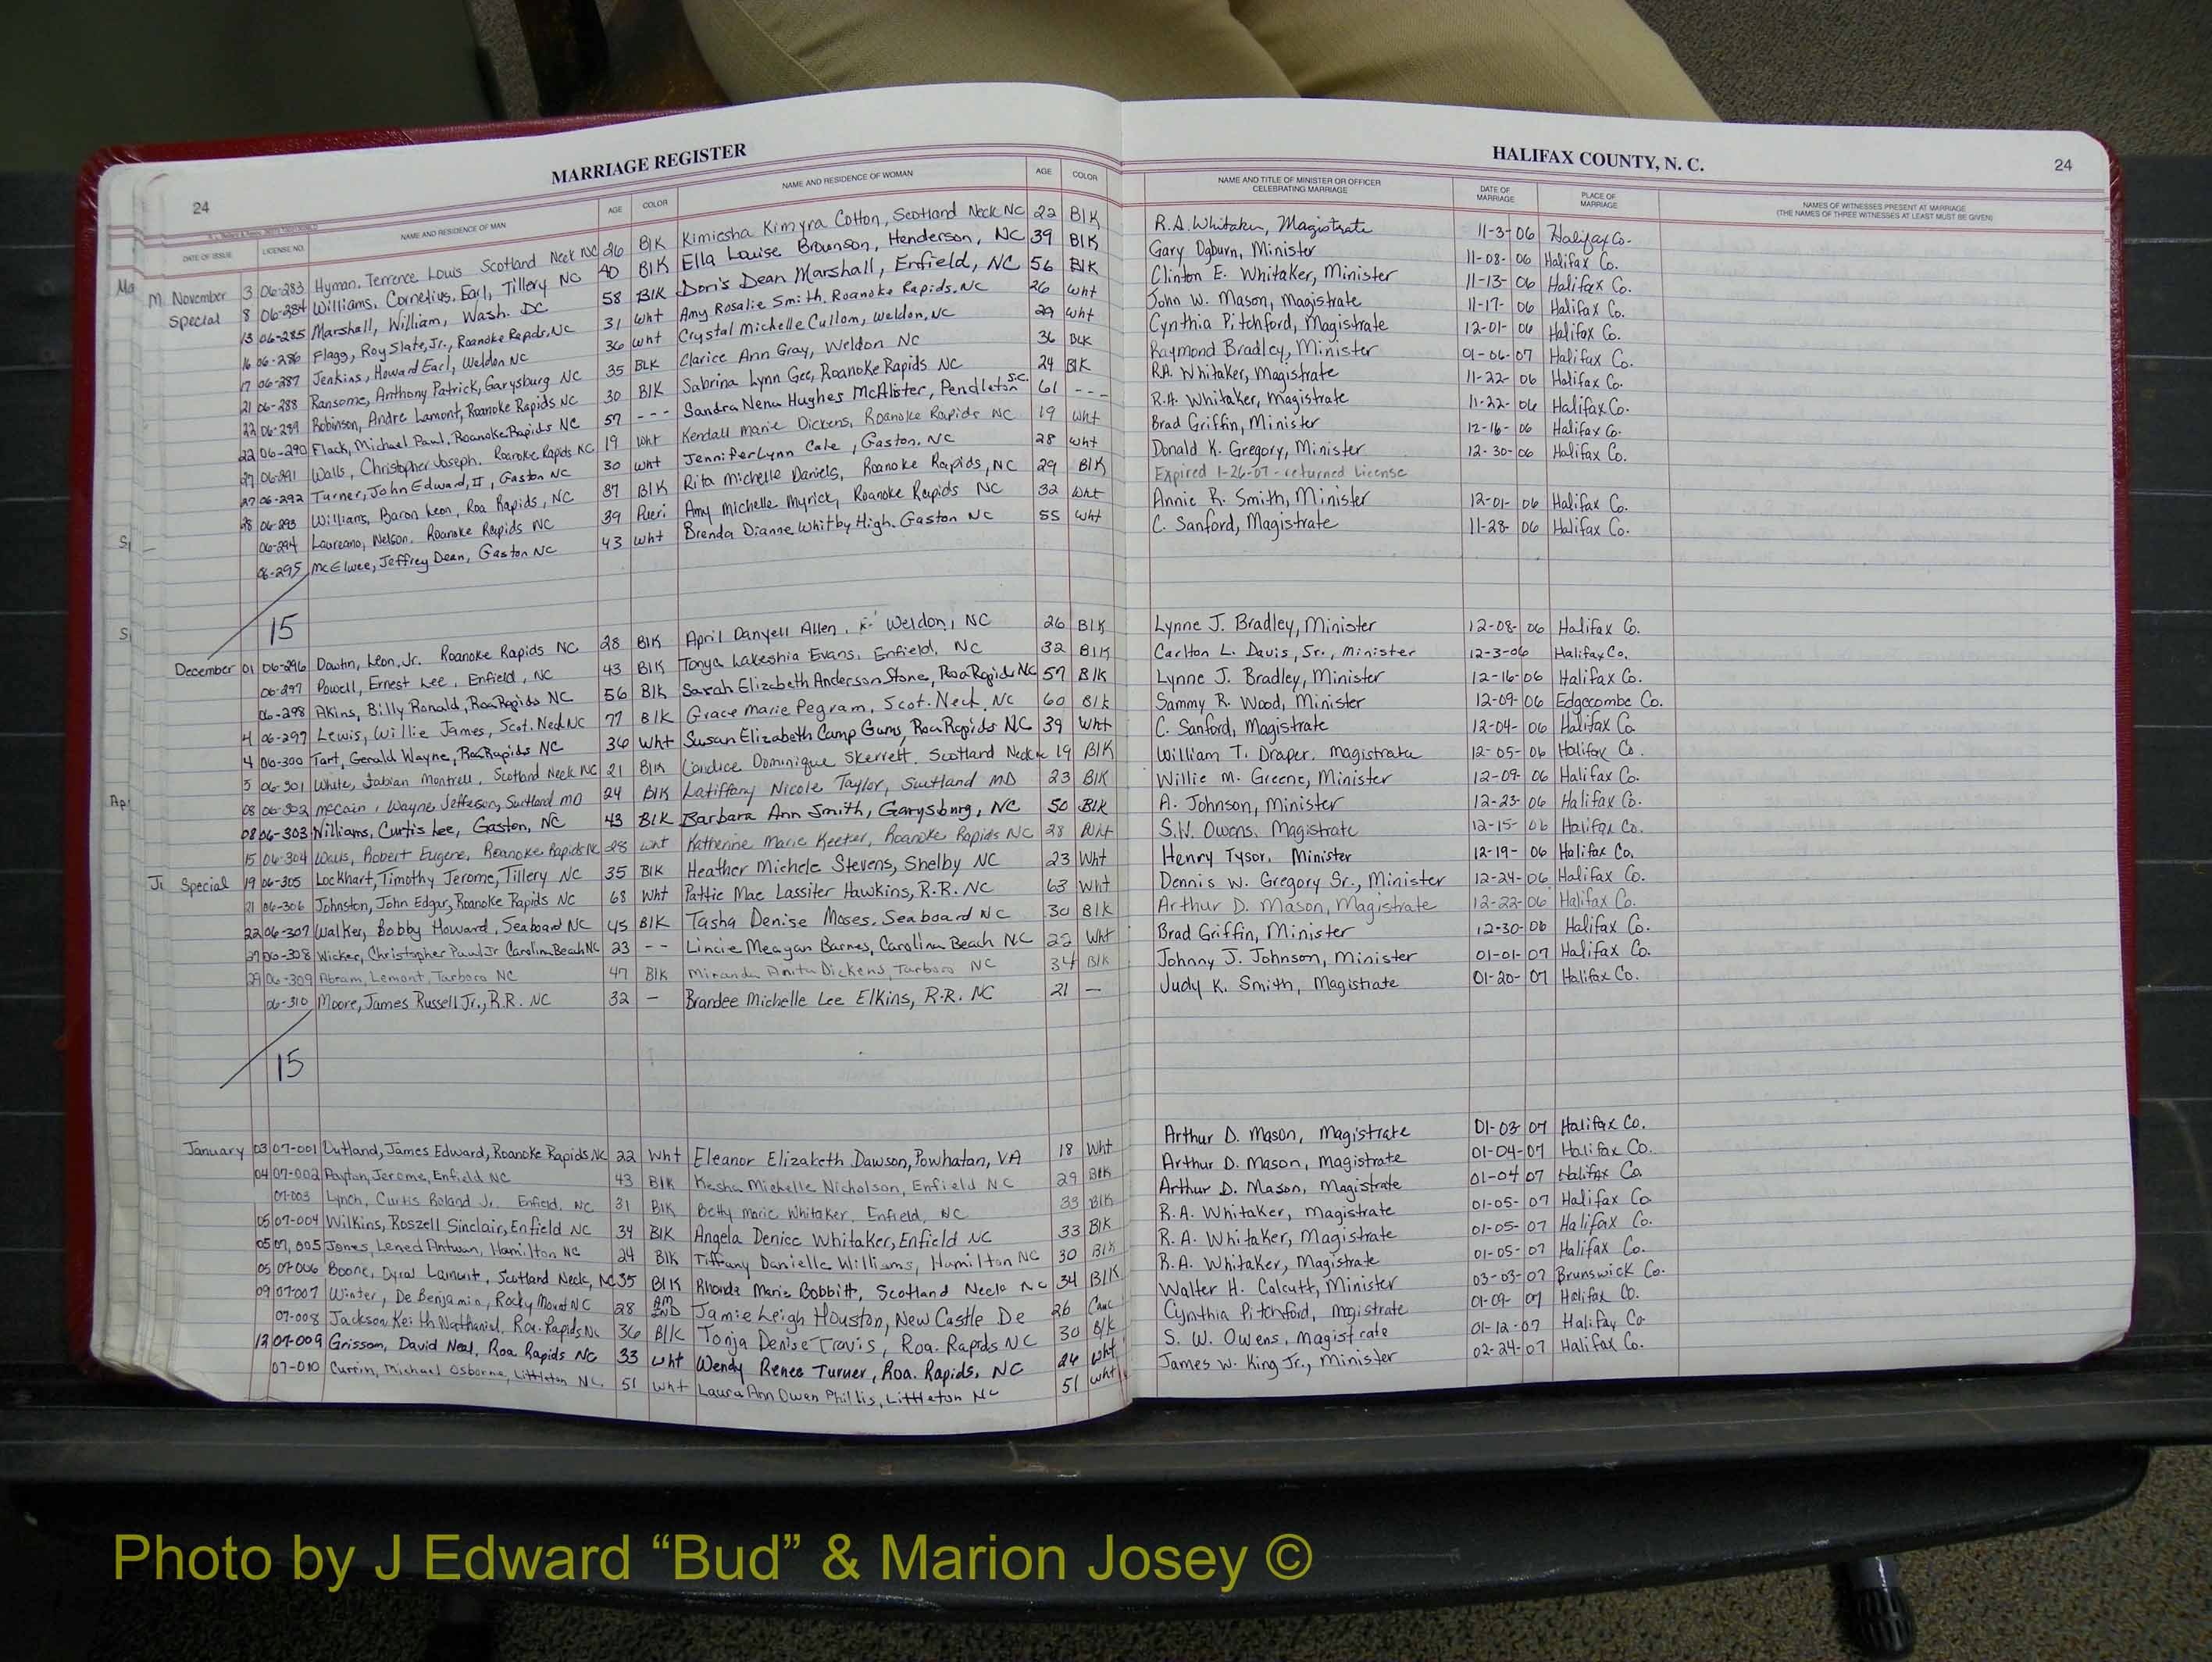 MARRIAGE REGISTER
HALIFAX COUNTY, N. C.
24
24
DATE OF ISSUE LICENSE NO. NAME AND RESIDENCE OF MAN AGE COLOR NAME AND RESIDENCE OF WOMAN AGE COLOR NAME AND TITLE OF MINISTER OR OFFICER CELEBRATING MARRIAGE DATE OF MARRIAGE PLACE OF MARRIAGE NAMES OF WITNESSES PRESENT AT MARRIAGE (THE NAMES OF THREE WITNESSES AT LEAST MUST BE GIVEN)
Ma
M November 3 06-283 Hyman, Terrence Louis Scotland Neck NC 26 Blk Kimiesha Kimyra Cotton, Scotland Neck NC 22 Blk R.A. Whitaker, Magistrate 11-3-06 Halifax Co.
Special 8 06-284 Williams, Cornelius, Earl, Tillery NC 40 Blk Ella Louise Brunson, Henderson, NC 39 Blk Gary Ogburn, Minister 11-08-06 Halifax Co.
13 06-285 Marshall, William, Wash. DC 58 Blk Doris Dean Marshall, Enfield, NC 56 Blk Clinton E. Whitaker, Minister 11-13-06 Halifax Co.
16 06-286 Flagg, Roy Slate, Jr., Roanoke Rapds, NC 31 Wht Amy Rosalie Smith, Roanoke Rapids, NC 26 Wht John W. Mason, Magistrate 11-17-06 Halifax Co.
17 06-287 Jenkins, Howard Earl, Weldon NC 36 Wht Crystal Michelle Cullom, Weldon, NC 29 Wht Cynthia Pitchford, Magistrate 12-01-06 Halifax Co.
21 06-288 Ransome, Anthony Patrick, Garysburg NC 35 BLK Clarice Ann Gray, Weldon NC 36 BLK Raymond Bradley, Minister 01-06-07 Halifax Co.
22 06-289 Robinson, Andre Lamont, Roanoke Rapids NC 30 Blk Sabrina Lynn Gee, Roanoke Rapids NC 24 Blk R.A. Whitaker, Magistrate 11-22-06 Halifax Co.
22 06-290 Flack, Michael Paul, Roanoke Rapids NC 57 --- Sandra Nena Hughes McAlister, Pendleton S.C. 61 --- R.A. Whitaker, Magistrate 11-22-06 Halifax Co.
27 06-291 Walls, Christopher Joseph, Roanoke Rapids NC 19 Wht Kendall Marie Dickens, Roanoke Rapids NC 19 Wht Brad Griffin, Minister 12-16-06 Halifax Co.
27 06-292 Turner, John Edward, II, Gaston NC 30 Wht Jennifer Lynn Cale, Gaston, NC 28 Wht Donald K. Gregory, Minister 12-30-06 Halifax Co.
28 06-293 Williams, Baron Leon, Roa Rapids, NC 37 Blk Rita Michelle Daniels, Roanoke Rapids, NC 29 Blk Expired 1-26-07 - returned License
06-294 Laureano, Nelson, Roanoke Rapids NC 39 Amy Michelle Myrick, Roanoke Rapids NC 32 Wht Annie R. Smith, Minister 12-01-06 Halifax Co.
06-295 McElwee, Jeffrey Dean, Gaston NC 43 Wht Brenda Dianne Whitby High, Gaston NC 55 Wht C. Sanford, Magistrate 11-28-06 Halifax Co.
15
December 01 06-296 Leon, Jr. Roanoke Rapids NC 28 Blk April Danyell Allen, Weldon, NC 26 Blk Lynne J. Bradley, Minister 12-08-06 Halifax Co.
06-297 Powell, Ernest Lee, Enfield, NC 43 Blk Tonya Lakeshia Evans, Enfield, NC 32 Blk Carlton L. Davis, Sr., Minister 12-3-06 Halifax Co.
06-298 Akins, Billy Ronald, Roa Rapids NC 56 Blk Sarah Elizabeth Anderson Stone, Roa Rapids NC 57 Blk Lynne J. Bradley, Minister 12-16-06 Halifax Co.
4 06-299 Lewis, Willie James, Scot. Neck NC 77 Blk Grace Marie Pegram, Scot. Neck, NC 60 Blk Sammy R. Wood, Minister 12-09-06 Edgecombe Co.
4 06-300 Tart, Gerald Wayne, Roa Rapids NC 36 Wht Susan Elizabeth Camp Gums, Roa Rapids NC 39 Wht C. Sanford, Magistrate 12-04-06 Halifax Co
5 06-301 White, Fabian Montrell, Scotland Neck NC 21 Blk Candice Dominique Skerrett, Scotland Neck 19 Blk William T. Draper, Magistrate 12-05-06 Halifax Co.
08 06-302 McCain, Wayne Jefferson, Suitland MD 24 Blk Latiffany Nicole Taylor, Suitland MD 23 Blk Willie M. Greene, Minister 12-09-06 Halifax Co.
08 06-303 Williams, Curtis Lee, Gaston, NC 43 Blk Barbara Ann Smith, Garysburg, NC 50 Blk A. Johnson, Minister 12-23-06 Halifax Co.
15 06-304 Walls, Robert Eugene, Roanoke Rapids NC 28 Wht Katherine Marie Keeter, Roanoke Rapids NC 28 Wht S.W. Owens, Magistrate 12-15-06 Halifax Co.
Special 19 06-305 Lockhart, Timothy Jerome, Tillery NC 35 Blk Heather Michele Stevens, Shelby NC 23 Wht Henry Tysor, Minister 12-19-06 Halifax Co.
21 06-306 Johnston, John Edgar, Roanoke Rapids NC 68 Wht Pattie Mae Lassiter Hawkins, R.R. NC 63 Wht Dennis W. Gregory Sr., Minister 12-24-06 Halifax Co.
22 06-307 Walker, Bobby Howard, Seaboard NC 45 Blk Tasha Denise Moses, Seaboard NC 30 Blk Arthur D. Mason, Magistrate 12-22-06 Halifax Co.
27 06-308 Wicker, Christopher Paul Jr Carolina Beach NC 23 -- Lincie Meagan Barnes, Carolina Beach NC 22 Wht Brad Griffin, Minister 12-30-06 Halifax Co.
29 06-309 Abram, Lemont, Tarboro NC 47 Blk Miranda Anita Dickens, Tarboro NC 34 Blk Johnny J. Johnson, Minister 01-01-07 Halifax Co.
06-310 Moore, James Russell Jr., R.R. NC 32 — Brandee Michelle Lee Elkins, R.R. NC 21 — Judy K. Smith, Magistrate 01-20-07 Halifax Co.
15
January 03 07-001 Outland, James Edward, Roanoke Rapids NC 22 Wht Eleanor Elizabeth Dawson, Powhatan, VA 18 Wht Arthur D. Mason, Magistrate 01-03-07 Halifax Co.
04 07-002 Payton, Jerome, Enfield NC 43 Blk Kesha Michelle Nicholson, Enfield NC 29 Blk Arthur D. Mason, Magistrate 01-04-07 Halifax Co.
07-003 Lynch, Curtis Roland Jr. Enfield, NC 31 Blk Betty Marie Whitaker, Enfield, NC 33 Blk Arthur D. Mason, Magistrate 01-04 07 Halifax Co
05 07-004 Wilkins, Roszell Sinclair, Enfield NC 34 Blk Angela Denice Whitaker, Enfield NC 33 Blk R.A. Whitaker, Magistrate 01-05-07 Halifax Co
05 07,005 Jones, Lened Antwan, Hamilton NC 24 Blk Tiffany Danielle Williams, Hamilton NC 30 Blk R.A. Whitaker, Magistrate 01-05-07 Halifax Co.
05 07-006 Boone, Dyral Lamont, Scotland Neck, NC 35 Blk Rhonda Marie Bobbitt, Scotland Neck NC 34 Blk R.A. Whitaker, Magistrate 01-05-07 Halifax Co.
09 07-007 Winter, De Benjamin, Rocky Mount NC 28 AM IND Jamie Leigh Houston, New Castle De 26 Cauc Walter H. Calcutt, Minister 03-03-07 Brunswick Co.
07-008 Jackson Keith Nathaniel, Roa. Rapids NC 36 Blk Tonja Denise Travis, Roa. Rapids NC 30 Blk Cynthia Pitchford, Magistrate 01-09-07 Halifax Co.
12 07-009 Grissom, David Neal, Roa Rapids NC 33 Wht Wendy Renee Turner, Roa. Rapids, NC 26 Wht S. W. Owens, Magistrate 01-12-07 Halifax Co
07-010 Currin, Michael Osborne, Littleton NC, 51 Wht Laura Ann Owen Phillis, Littleton NC 51 Wht James W. King Jr., Minister 02-24-07 Halifax Co.
Photo by J Edward “Bud” & Marion Josey ©